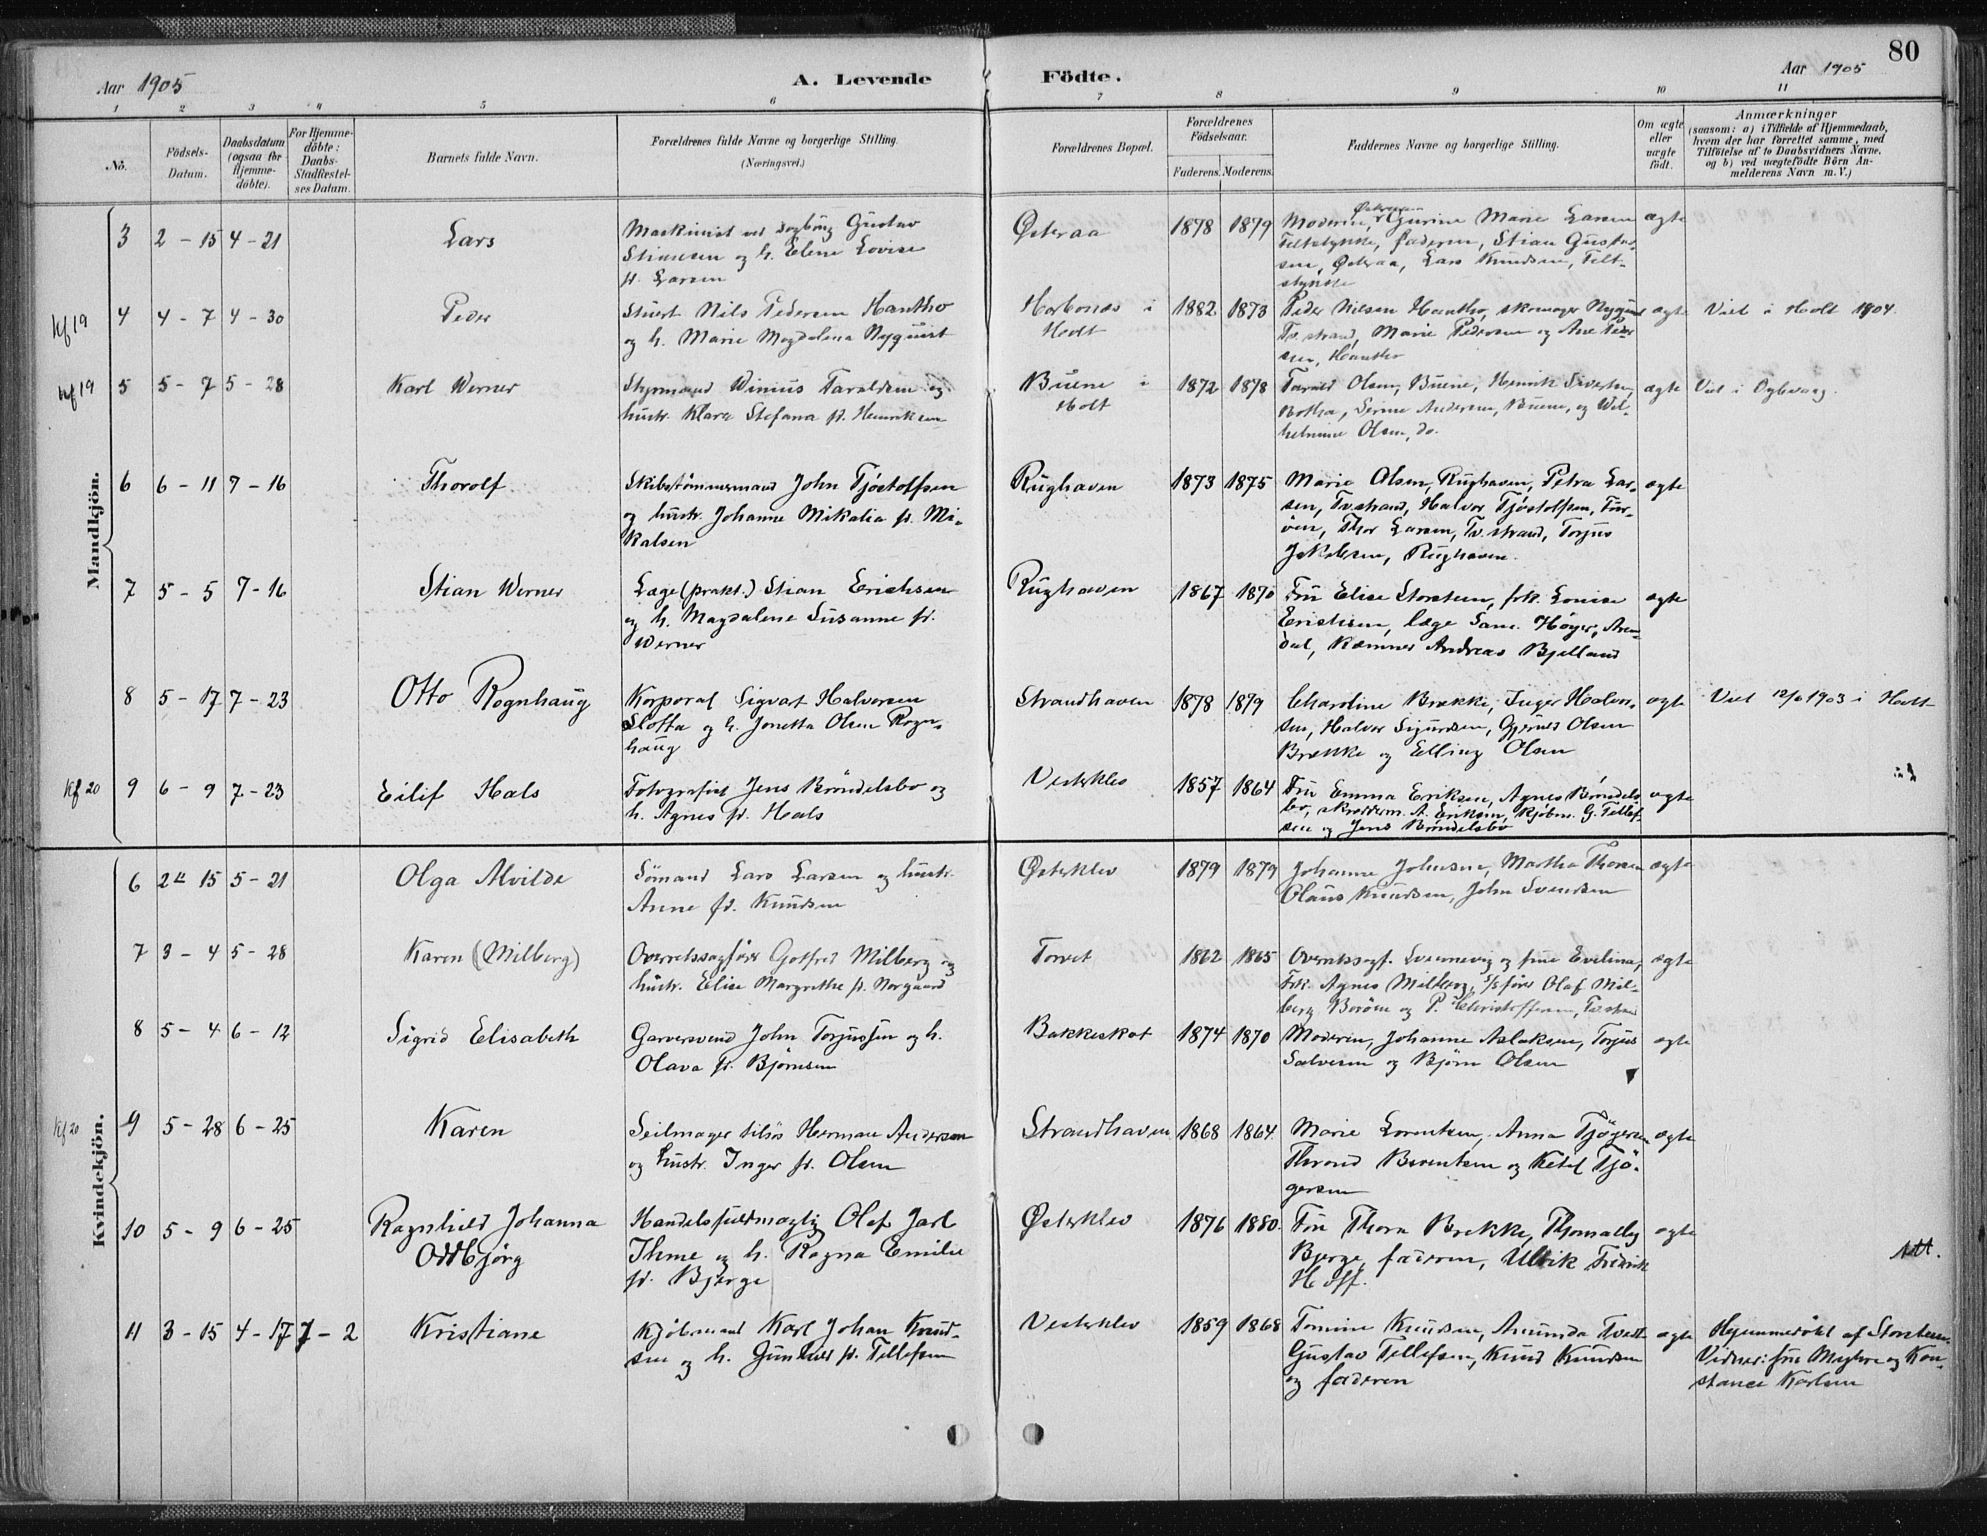 80
Aar 1905 A. Levende Födte. Aar 1905
1 2 3 4 5 6 7 8 9 10 11
No.
Födsels-
Datum.
Daabsdatum
(ogsaa for
Hjemme-
döbte).
For Hjemme-
döbte:
Daabs-
Stadfæstel-
ses Datum.
Barnets fulde Navn.
Forældrenes fulde Navne og borgerlige Stilling.
(Næringsvei.)
Forældrenes Bopæl.
Forældrenes
Födselsaar.
Faderens. Moderens.
Faddernes Navne og borgerlige Stilling.
Om ægte
eller
uægte
födt.
Anmærkninger
(saasom: a) i Tilfælde af Hjemmedaab,
hvem der har forrettet samme, med
Tilföielse af to Daabsvidners Navne.
og b) ved uægtefödte Börn An-
melderens Navn m. V.)
Mandkjön.
3 2 - 15 4 - 21 Lars
Maskinist ved Gustav
Stiansen og h. Elene Lovise
f. Larsen
Østeraa 1878 1879
Moderen, Østeraa, Gurine Marie Larsen
Teltstykke, faderen, Stian Gustav-
sen, Østeraa, Lars Knudsen, Telt-
stykke
ægte
kf 19 4 4 - 7 4 - 30 Peder
Stuert Nils Pedersen Hantho
og h. Marie Magdalena Nyquist
i
Holt
1882 1873
Peder Nilsen Hantho, skomager Nyquist
Tv.strand, Marie Pedersen og Ane Peder-
sen, Hantho
ægte Viet i Holt 1904.
kf 19 5 5 - 7 5 - 28 Karl Werner
Styrmand Winius Taraldsen og
hustr. Klara Stefana f. Henriksen
Buene i
Holt
1872 1878
Tarald Olsen, Buene, Henrik Sivertsen,
Botha, Serine Andersen, Buene, og Wil-
helmine Olsen, do.
ægte Viet i Dybvaag.
6 6 - 11 7 - 16 Thorolf
Skibstömmermand John Tjöstolfsen
og hustr. Johanne Mikalia f. Mi-
kalsen
Rughaven 1873 1875
Marie Olsen, Rughaven, Petra Lar-
sen, Tv.strand, Halvor Tjöstolfsen, Fur-
öen, Thor Larsen, Tv.strand, Torjus
Jakobsen, Rughaven.
ægte
7 5 - 5 7 - 16 Stian Werner
Læge (prakt.) Stian Erichsen
og h. Magdalene Susanne f.
Werner
Rughaven 1867 1870
Fru Elise Storsteen, frk. Louise
Erichsen, læge Sam. Høyer, Aren-
dal, Kæmner Andreas Bjelland
ægte
8 5 - 17 7 - 23 Otto Rognhaug
Korporal Sigvat Halvorsen
Slotta og h. Jonetta Olsen Rogn-
haug
Strandhaven 1878 1879
Charoline Brække, Inger Halvor-
sen, Halvor Sigurdsen, Gjerulf Olsen
Brække og Elling Olsen
ægte Viet 12/6 1903 i Holt
kf 20 9 6 - 9 7 - 23 Eilif Hals
Fotografist Jens Bröndelsbo og
h. Agnes f. Hals
Vesterklev 1857 1864
Fru Emma Eriksen, Agnes Bröndels-
bo, skrædderm. A. Eriksen, Kjöbm. G. Tellef-
sen og Jens Bröndelsbo
ægte
Kvindekjön.
6 2 - 15 5 - 21 Olga Alvilde
Sömand Lars Larsen og hustr.
Anne f. Knudsen
Østerklev 1879 1879
Johanne Johnsen, Martha Thorsen
Olaus Knudsen, John Svendsen
ægte
7 3 - 4 5 - 28 Karen (Milberg)
Overretssagförer Gotfred Milberg og
hustr. Elise Margrethe f. Norgaard
Torvet 1862 1865
Overretssagf. Svennevig og frue Evelina,
Frk. Agnes Milberg, s/s förer Olaf Mil-
berg Boröen og P. Christoffersen, Tv.strand
ægte
8 5 - 4 6 - 12 Sigrid Elisabeth
Garversvend John Torjussen og h.
Olava f. Björnsen
Bakkeskot 1874 1870
Moderen, Johanne Aslaksen, Torjus
Salvesen og Björn Olsen
ægte
kf 20 9 5 - 28 6 - 25 Karen
Seilmager tilsös Herman Andersen
og hustr. Inger f. Olsen
Strandhaven 1868 1864.
Marie Lorentsen, Anna Tjögersen
Thrond Berentsen og Ketil Tjö-
gersen
ægte
10 5 - 9 6 - 25 Ragnhild Johanna
Oddbjörg
Handelsfuldmægtig Olaf Jarl
Ihme og h. Ragna Emilie
f. Bjerge
Østerklev 1876 1880.
Fru Thora Brekke,
Bjerge, faderen, Ulrik Fredrik
Hoff.
ægte Att.
11 3 - 15 4 - 17 7 - 2 Kristiane
Kjöbmand Karl Johan Knud-
sen og h. Gunhild f. Tellefsen
Vesterklev 1859 1868
Tomine Knudsen, Amunda Tvedt
Gustav Tellefsen, Knud Knudsen
og faderen
ægte
Hjemmedöbt af Storsteen
Vidner: fru Myhre og Kon-
stance Karlsen